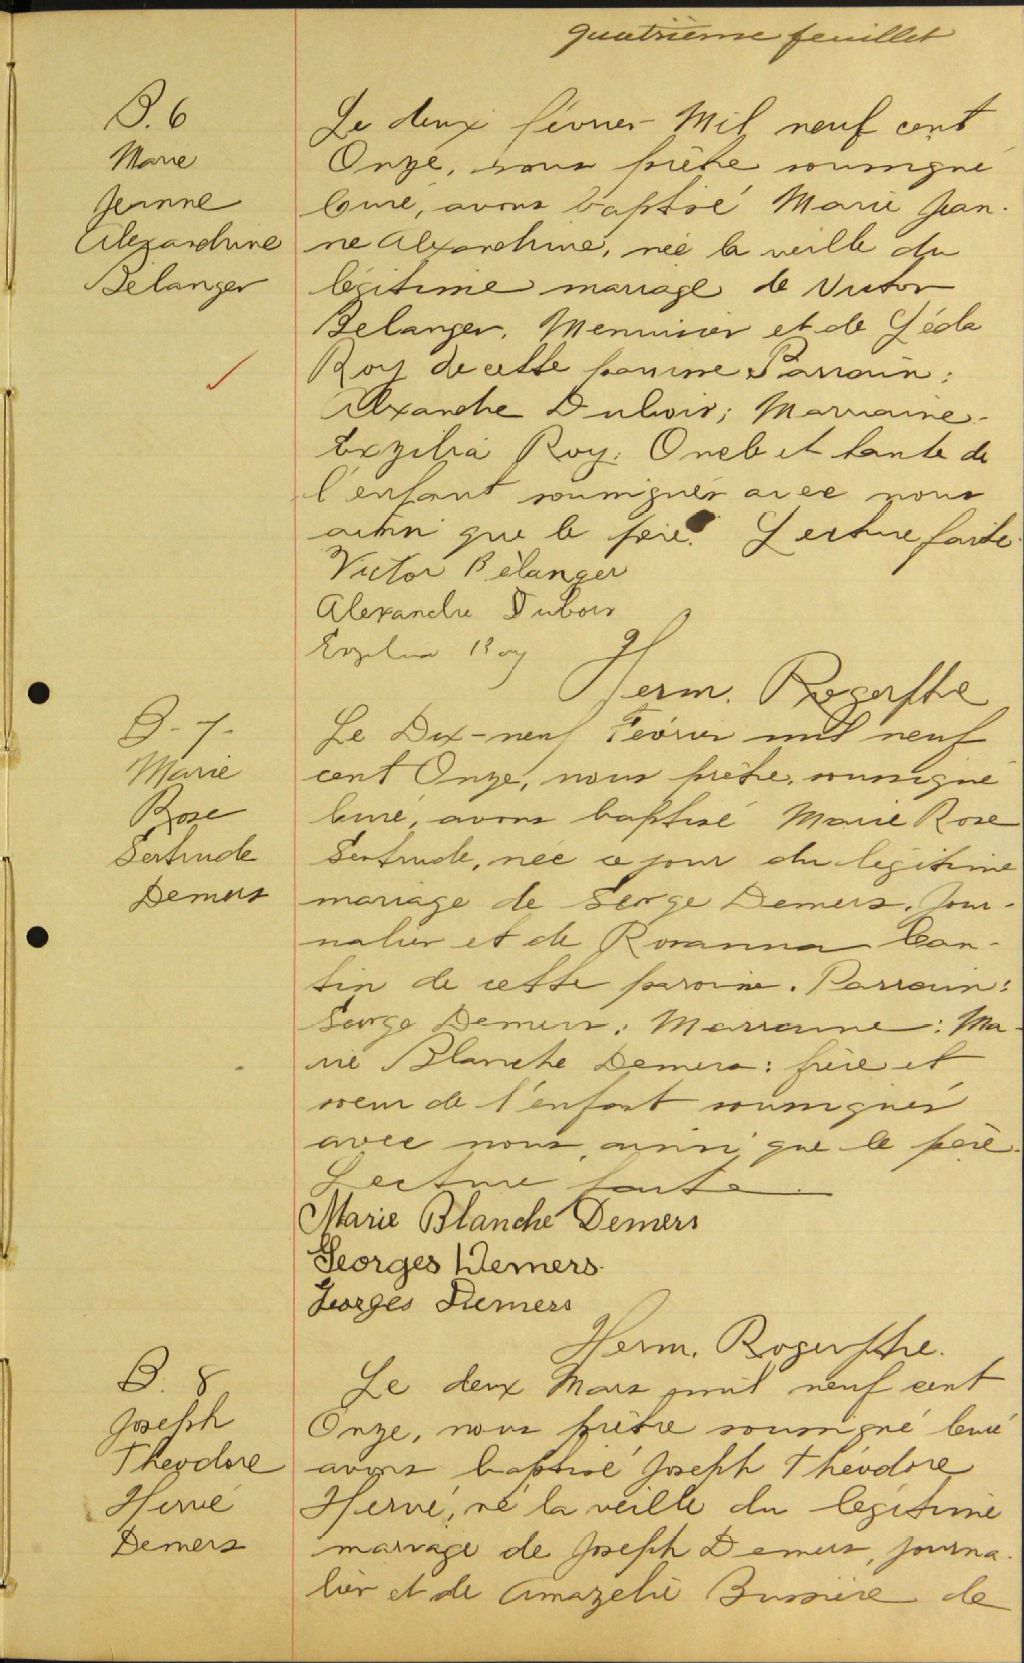 quatrième feuillet
B. 6
Marie
Jeanne
Alexandrine
Bélanger
Le deux février Mil neuf cent
Onze, nous prêtre soussigné
Curé, avons baptisé Marie Jean-
ne Alexandrine, née la veille du
légitime mariage de Victor
Belanger, Menuisier et de Léda
Roy de cette paroisse. Parrain:
Alexandre Dubois; Marraine
Exzilia Roy. Oncle et tante de
l'enfant soussignés avec nous
ainsi que le père. Lecture faite.
Victor Bélanger
Alexandre Dubois
Exzilia Roy
Herm. Roger ptre
B-7-
Marie
Rose
Gertrude
Demers
Le Dix-neuf Février mil neuf
cent Onze, nous prêtre, soussigné
Curé, avons baptisé Marie Rose
Gertrude, née ce jour du légitime
mariage de George Demers, Jour-
nalier et de Rosanna Can-
tin de cette paroisse. Parrain:
George Demers; Marraine: Ma-
rie Blanche Demers: frère et
soeur de l'enfant soussignés
avec nous, ainsi que le père.
Lecture faite
Marie Blanche Demers
Georges Demers
Georges Demers
Herm. Roger ptre.
B. 8
Joseph
Théodore
Hervé
Demers
Le deux Mars mil neuf cent
Onze, nous prêtre soussigné Curé
avons baptisé Joseph Théodore
Hervé, né la veille du légitime
mariage de Joseph Demers, journa-
lier et de Amazelie Bussière de